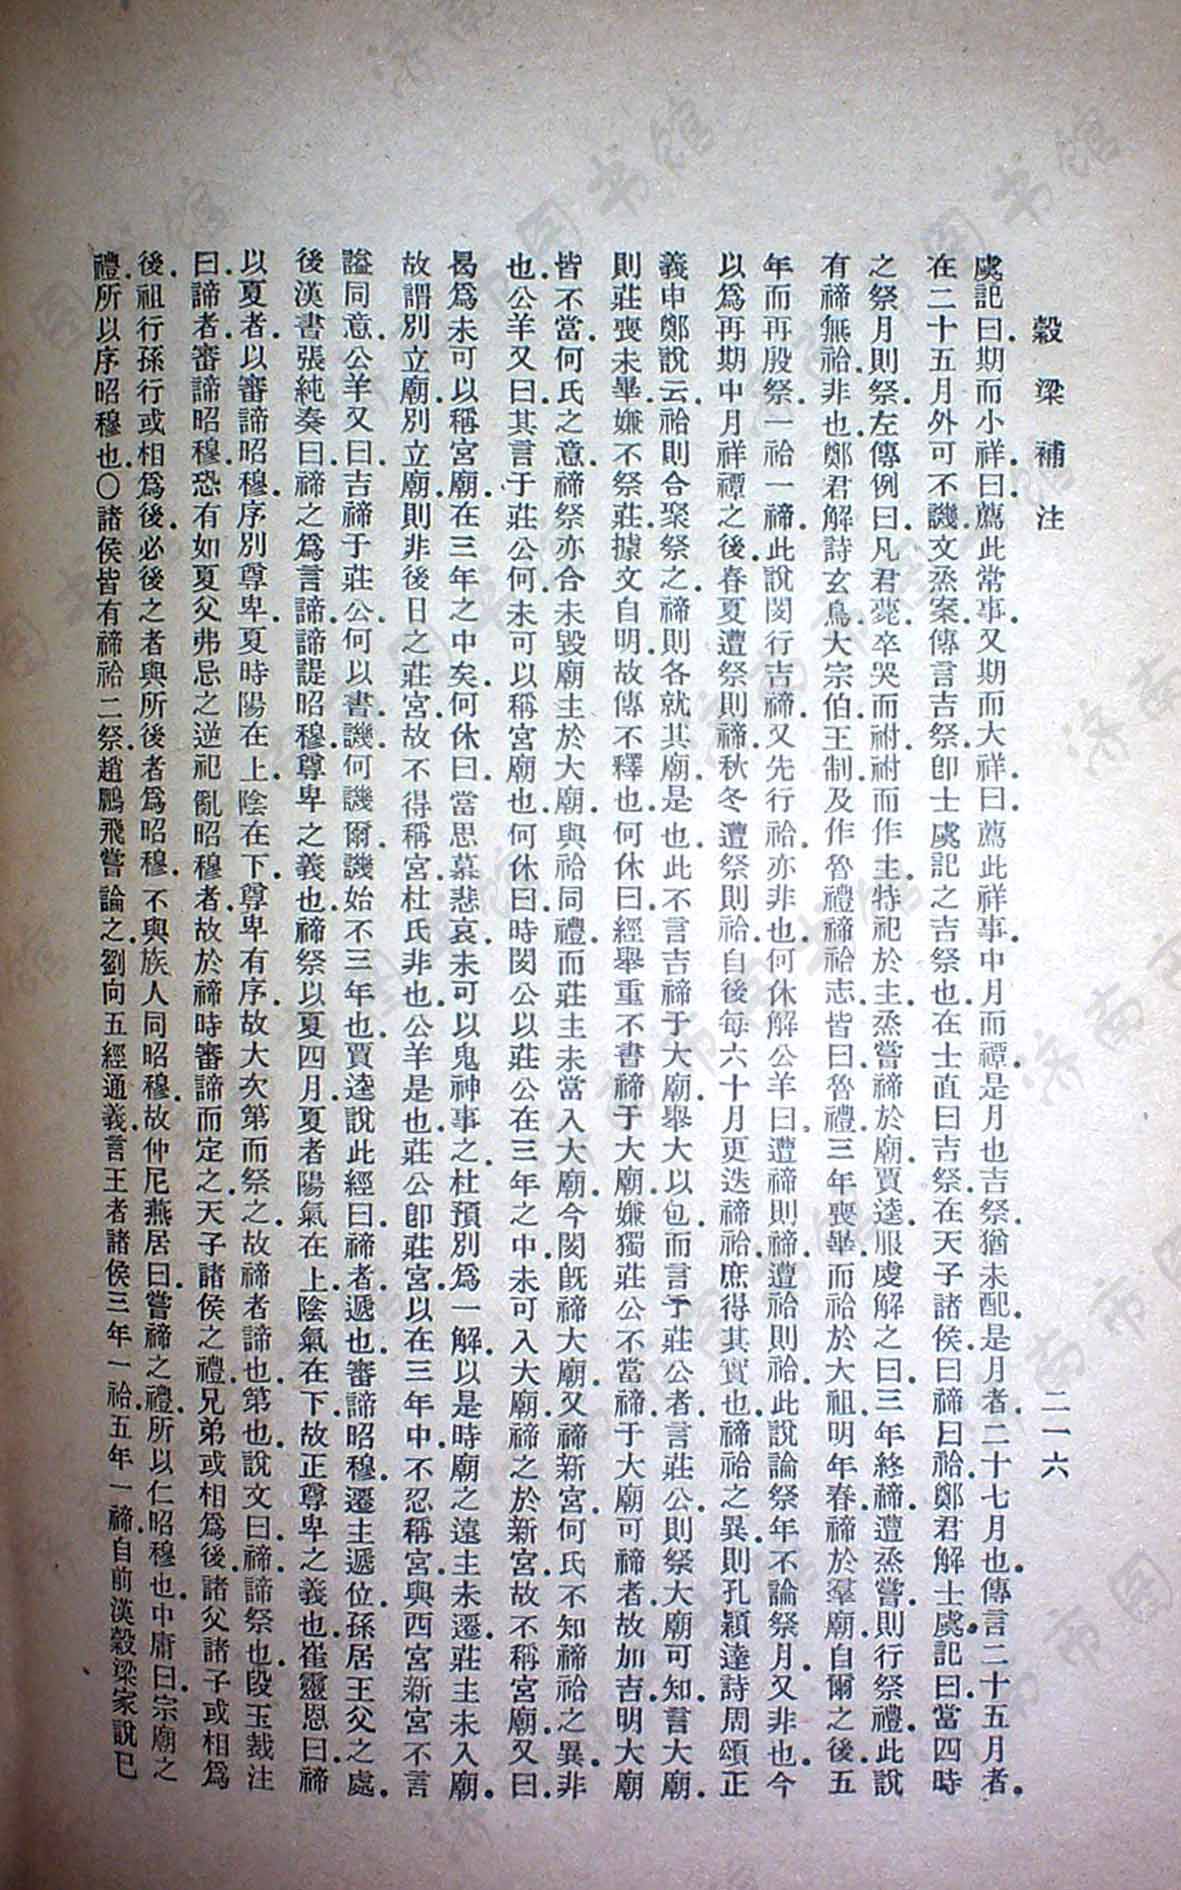 穀梁補注
二一六
虞記曰.期而小祥.曰.薦此常事.又期而大祥.曰.薦此祥事.中月而禫.是月也吉祭.猶未配.是月者.二十七月也.傳言二十五月者.
在二十五月外可不譏.文烝案.傳言吉祭.卽士虞記之吉祭也.在士直曰吉祭.在天子諸侯.曰禘曰祫.鄭君解士虞記曰.當四時
之祭月則祭.左傳例曰.凡君薨.卒哭而祔.祔而作主.特祀於主.烝嘗禘於廟.賈逵.服虔解之曰.三年終禘.遭烝嘗.則行祭禮.此說
有禘無祫.非也.鄭君解詩玄鳥.大宗伯.王制.及作魯禮禘祫志.皆曰.魯禮.三年喪畢.而祫於大祖.明年春.禘於羣廟.自爾之後.五
年而再殷祭.一祫一禘.此說閔行吉禘.又先行祫.亦非也.何休解公羊曰.遭禘則禘.遭祫則祫.此說論祭年不論祭月.又非也.今
以爲再期中月祥禫之後.春夏遭祭則禘.秋冬遭祭則祫.自後每六十月更迭禘祫.庶得其實也.禘祫之異.則孔穎達詩周頌正
義申鄭說云.祫則合聚祭之.禘則各就其廟.是也.此不言吉禘于大廟.舉大以包.而言于莊公者.言莊公.則祭大廟可知.言大廟.
則莊喪未畢.嫌不祭莊.據文自明.故傳不釋也.何休曰.經舉重.不書禘于大廟.嫌獨莊公不當禘.于大廟可禘者.故加吉.明大廟
皆不當.何氏之意.禘祭亦合未毀廟主於大廟.與祫同禮.而莊主未當入大廟.今閔旣禘大廟.又禘新宮.何氏不知禘祫之異.非
也.公羊又曰.其言于莊公何.未可以稱宮廟也.何休曰.時閔公以莊公在三年之中.未可入大廟.禘之於新宮.故不稱宮廟.又曰.
曷爲未可以稱宮廟.在三年之中矣.何休曰.當思慕悲哀.未可以鬼神事之.杜預別爲一解.以是時廟之遠主未遷.莊主未入廟.
故謂別立廟.別立廟.則非後日之莊宮.故不得稱宮.杜氏非也.公羊是也.莊公卽莊宮.以在三年中.不忍稱宮.與西宮新宮不言
謚同意.公羊又曰.吉禘于莊公.何以書.譏.何譏爾.譏始不三年也.賈逵說此經曰.禘者.遞也.審諦昭穆.遷主遞位.孫居王父之處.
後漢書張純奏曰.禘之爲言諦.諦諟昭穆.尊卑之義也.禘祭以夏四月.夏者陽氣在上.陰氣在下.故正尊卑之義也.崔靈恩曰.禘
以夏者.以審諦昭穆.序別尊卑.夏時陽在上.陰在下.尊卑有序.故大次第而祭之.故禘者諦也.第也.說文曰.禘.諦祭也.段玉裁注
曰.諦者.審諦昭穆.恐有如夏父弗忌之逆祀亂昭穆者.故於禘時審諦而定之.天子諸侯之禮.兄弟或相爲後.諸父諸子或相爲
後.祖行孫行或相爲後.必後之者與所後者爲昭穆.不與族人同昭穆.故仲尼燕居曰.嘗禘之禮.所以仁昭穆也.中庸曰.宗廟之
禮.所以序昭穆也.○諸侯皆有禘祫二祭.趙鵬飛嘗論之.劉向五經通義言王者諸侯三年一祫.五年一禘.自前漢穀梁家說已